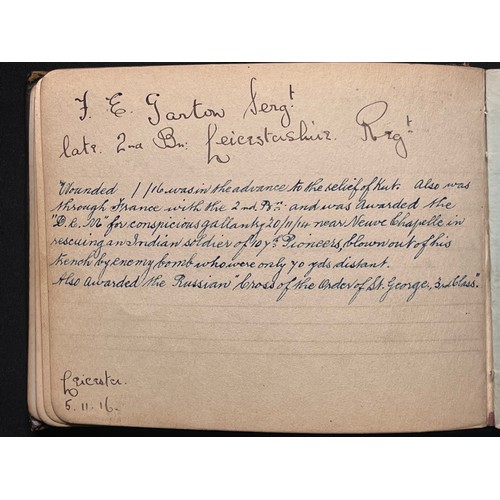 F. E. Garton Sergt
late 2nd Bn: Leicestershire Regt
Wounded 1/16 was in the advance to the relief of Kut. Also was
through France with the 2nd Bn: and was awarded the
"D.C.M" for conspicious gallantry 20/11/14 near Neuve Chapelle in
rescuing an Indian soldier of 107th Pioneers, blown out of his
trench by enemy bomb who were only 70 yds distant.
Also awarded the Russian "Cross of the Order of St. George, 3rd Class".
Leicester.
5.11.16.